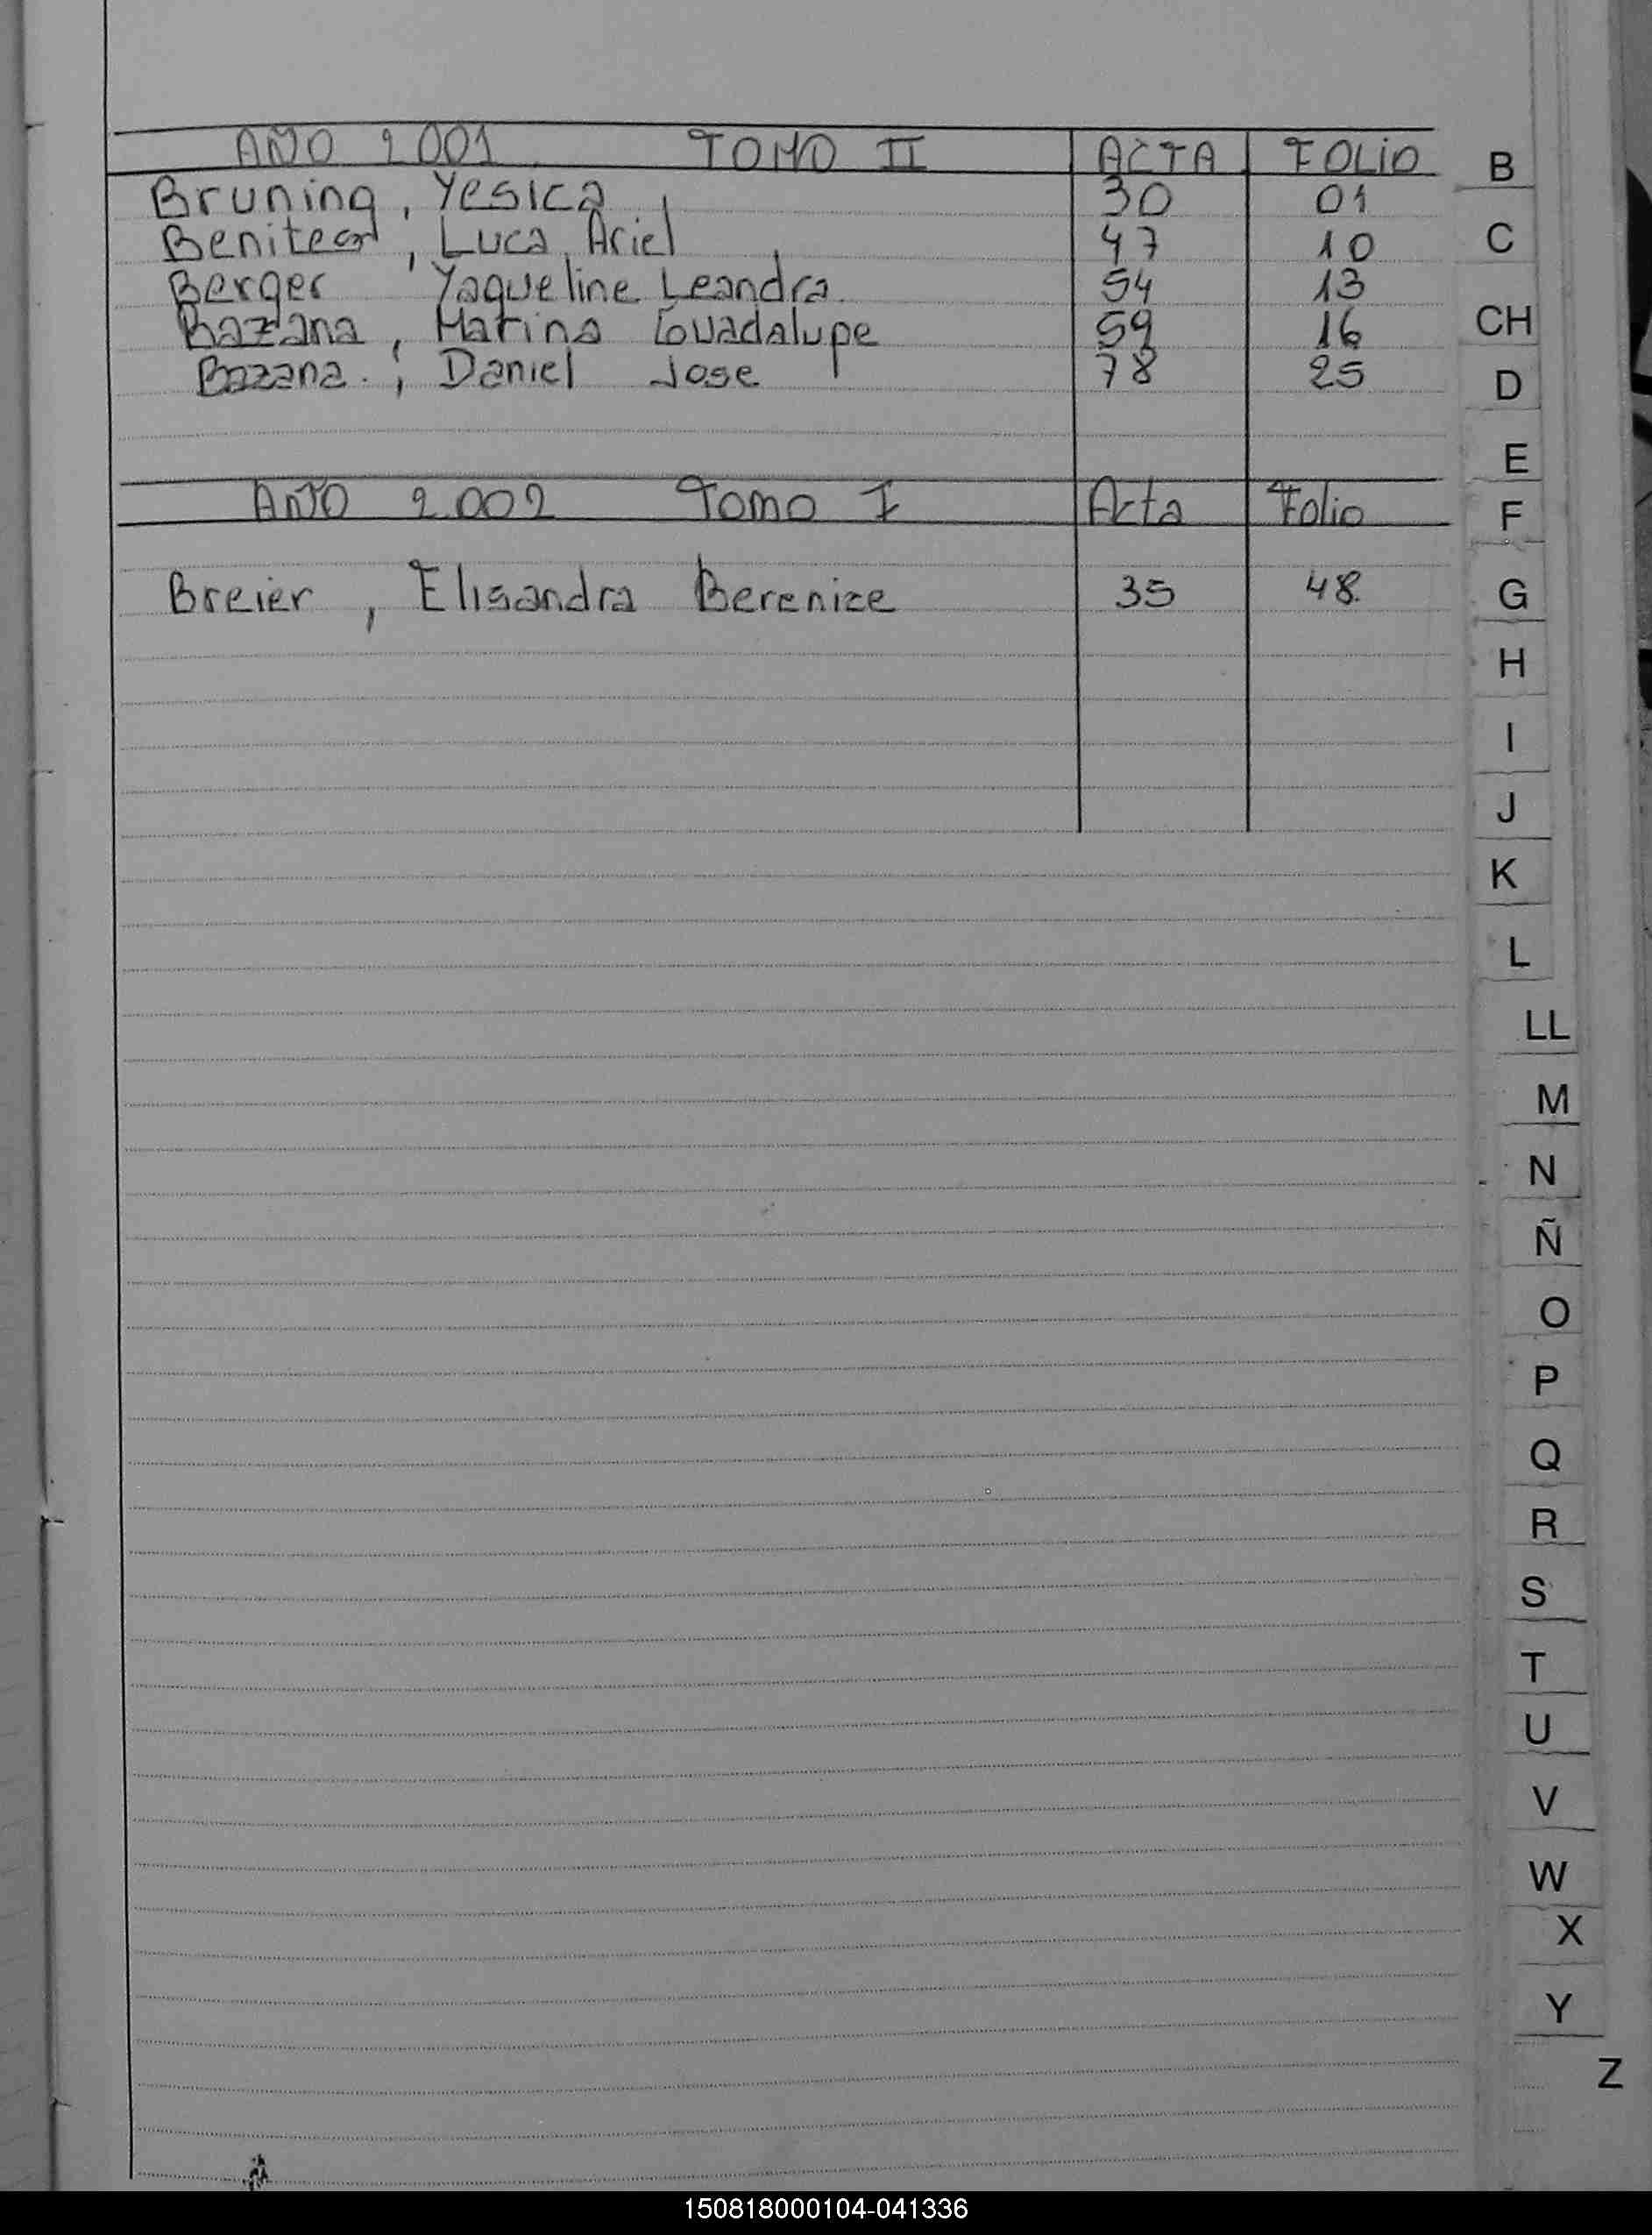 AÑO 2001 TOMO II ACTA FOLIO
Bruning, Yesica 30 01
Luca Ariel 47 10
Berger, Yaqueline Leandra. 54 13
Bazana, Marina Guadalupe 59 16
Bazana., Daniel Jose 78 25
AÑO 2.002 Tomo I Acta Folio
Breier, Elisandra Berenice 35 48.
B
C
CH
D
E
F
G
H
I
J
K
L
LL
M
N
Ñ
O
P
Q
R
S
T
U
V
W
X
Y
Z
150818000104-041336